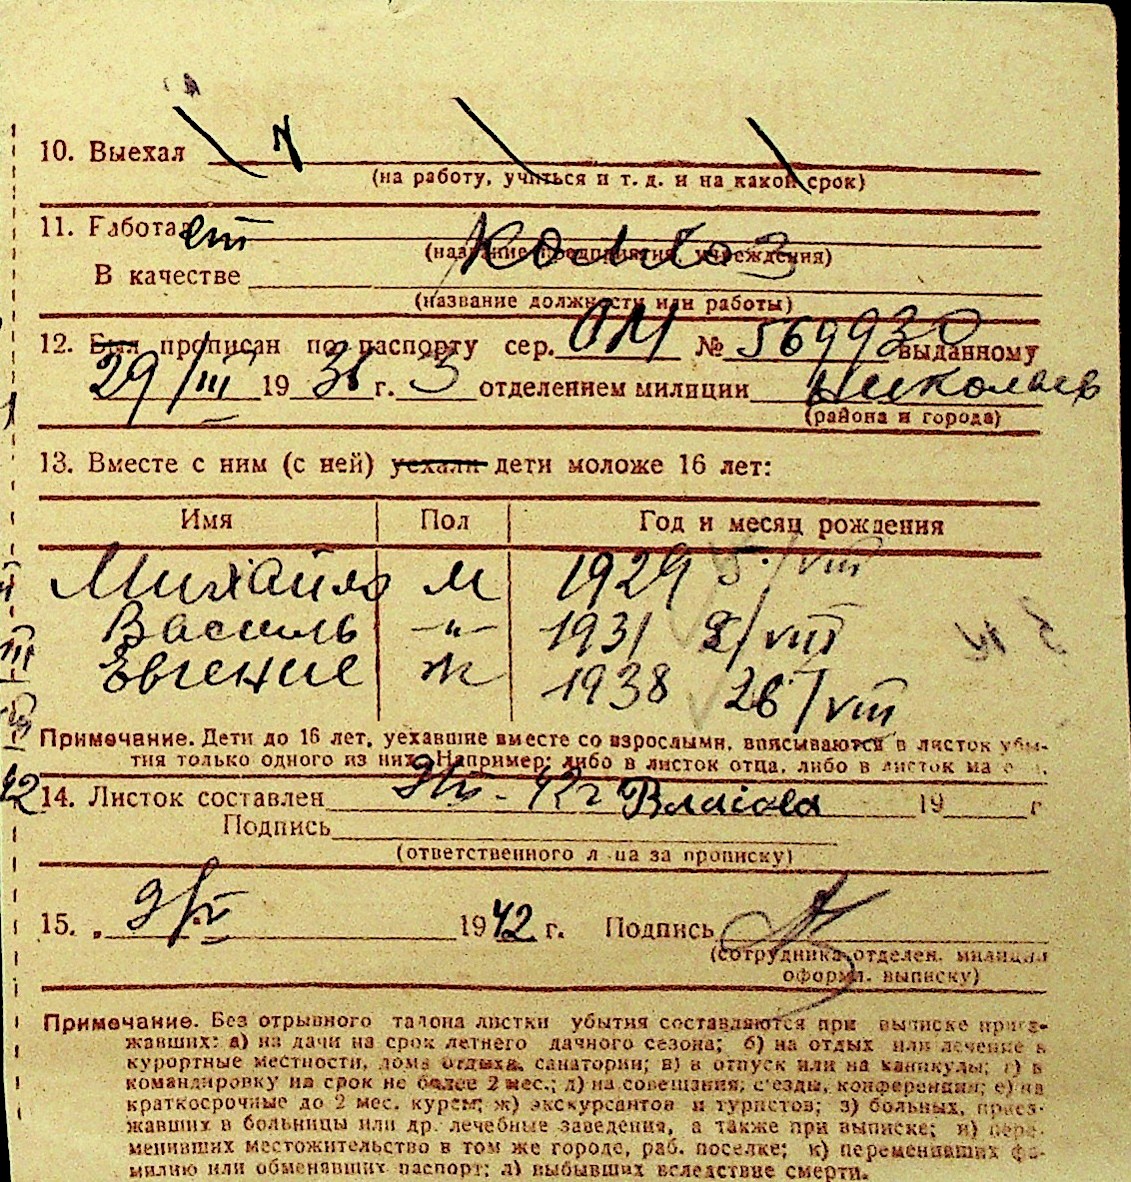 10. Выехал
(на работу, учиться и т. д. и на какой срок)
11. Работает Колхоз
(название предприятия, учреждения)
В качестве
(название должности или работы)
12. Был прописан по паспорту сер. ОМ № 569930 выданному
29/III 1936 г. 3 отделением милиции Николаев
(района и города)
13. Вместе с ним (с ней) уехали дети моложе 16 лет:
Имя Пол Год и месяц рождения
Михайло м 1929 5/VIII
Василь -"- 1931 8/VIII
Евгение ж 1938 26/VIII
Примечание. Дети до 16 лет, уехавшие вместе со взрослыми, вписываются в листок убы-
тия только одного из них. Например: либо в листок отца, либо в листок ма
14. Листок составлен 9/IV - 42 г 19 г
Подпись
(ответственного лица за прописку)
15. „ 9/IV 1942 г. Подпись
(сотрудника отделен. милиции
оформ. выписку)
Примечание. Без отрывного талона листки убытия составляются при выписке приез-
жавших: а) на дачи на срок летнего дачного сезона; б) на отдых или лечение в
курортные местности, дома отдыха, санатории; в) в отпуск или на каникулы; г) в
командировку на срок не более 2 мес.; д) на совещания, съезды, конференции; е) на
краткосрочные до 2 мес. курсы; ж) экскурсантов и туристов; з) больных, приез-
жавших в больницы или др. лечебные заведения, а также при выписке; и) пере-
менивших местожительство в том же городе, раб. поселке; к) переменивших фа-
милию или обменявших паспорт; л) выбывших вследствие смерти.